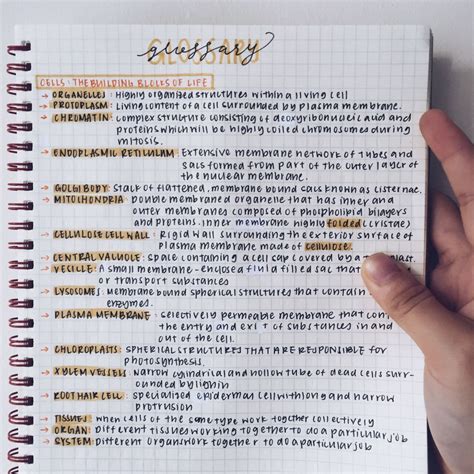 glossary
GLOSSARY
CELLS: THE BUILDING BLOCKS OF LIFE
→ ORGANELLES: Highly organised structures within a living cell
→ PROTOPLASM: Living content of a cell surrounded by plasma membrane.
→ CHROMATIN: complex structure consisting of deoxyribonucleic acid and
proteins which will be highly coiled chromosomes during
mitosis.
→ ENDOPLASMIC RETICULUM: Extensive membrane network of tubes and
sacs formed from part of the outer layer of
the nuclear membrane.
→ GOLGI BODY: stack of flattened, membrane bound sacs known as cisternae.
→ MITOCHONDRIA: double membraned organelle that has inner and
outer membranes composed of phospholipid bilayers
and proteins. inner membrane highly folded (cristae)
→ CELLULOSE CELL WALL: Rigid wall surrounding the exterior surface of
plasma membrane made of cellulose.
→ CENTRAL VACUOLE: space containing a cell sap covered by a
→ VESICLE: A small membrane-enclosed fluid filled sac that
or transport substances
→ LYSOSOMES: Membrane bound spherical structures that contain
enzymes.
→ PLASMA MEMBRANE: selectively permeable membrane that
the entry and exit of substances in and
out of the cell.
→ CHLOROPLASTS: SPHERICAL STRUCTURES THAT ARE RESPONSIBLE FOR
PHOTOSYNTHESIS.
→ XYLEM VESSELS: Narrow cylindrical and hollow tube of dead cells surr-
ounded by lignin
→ ROOT HAIR CELL: specialized epidermal cell with long and narrow
protrusion
→ TISSUES: when cells of the same type work together collectively
→ ORGAN: Different tissues working together to do a particular job
→ SYSTEM: Different Organs work together to do a particular job